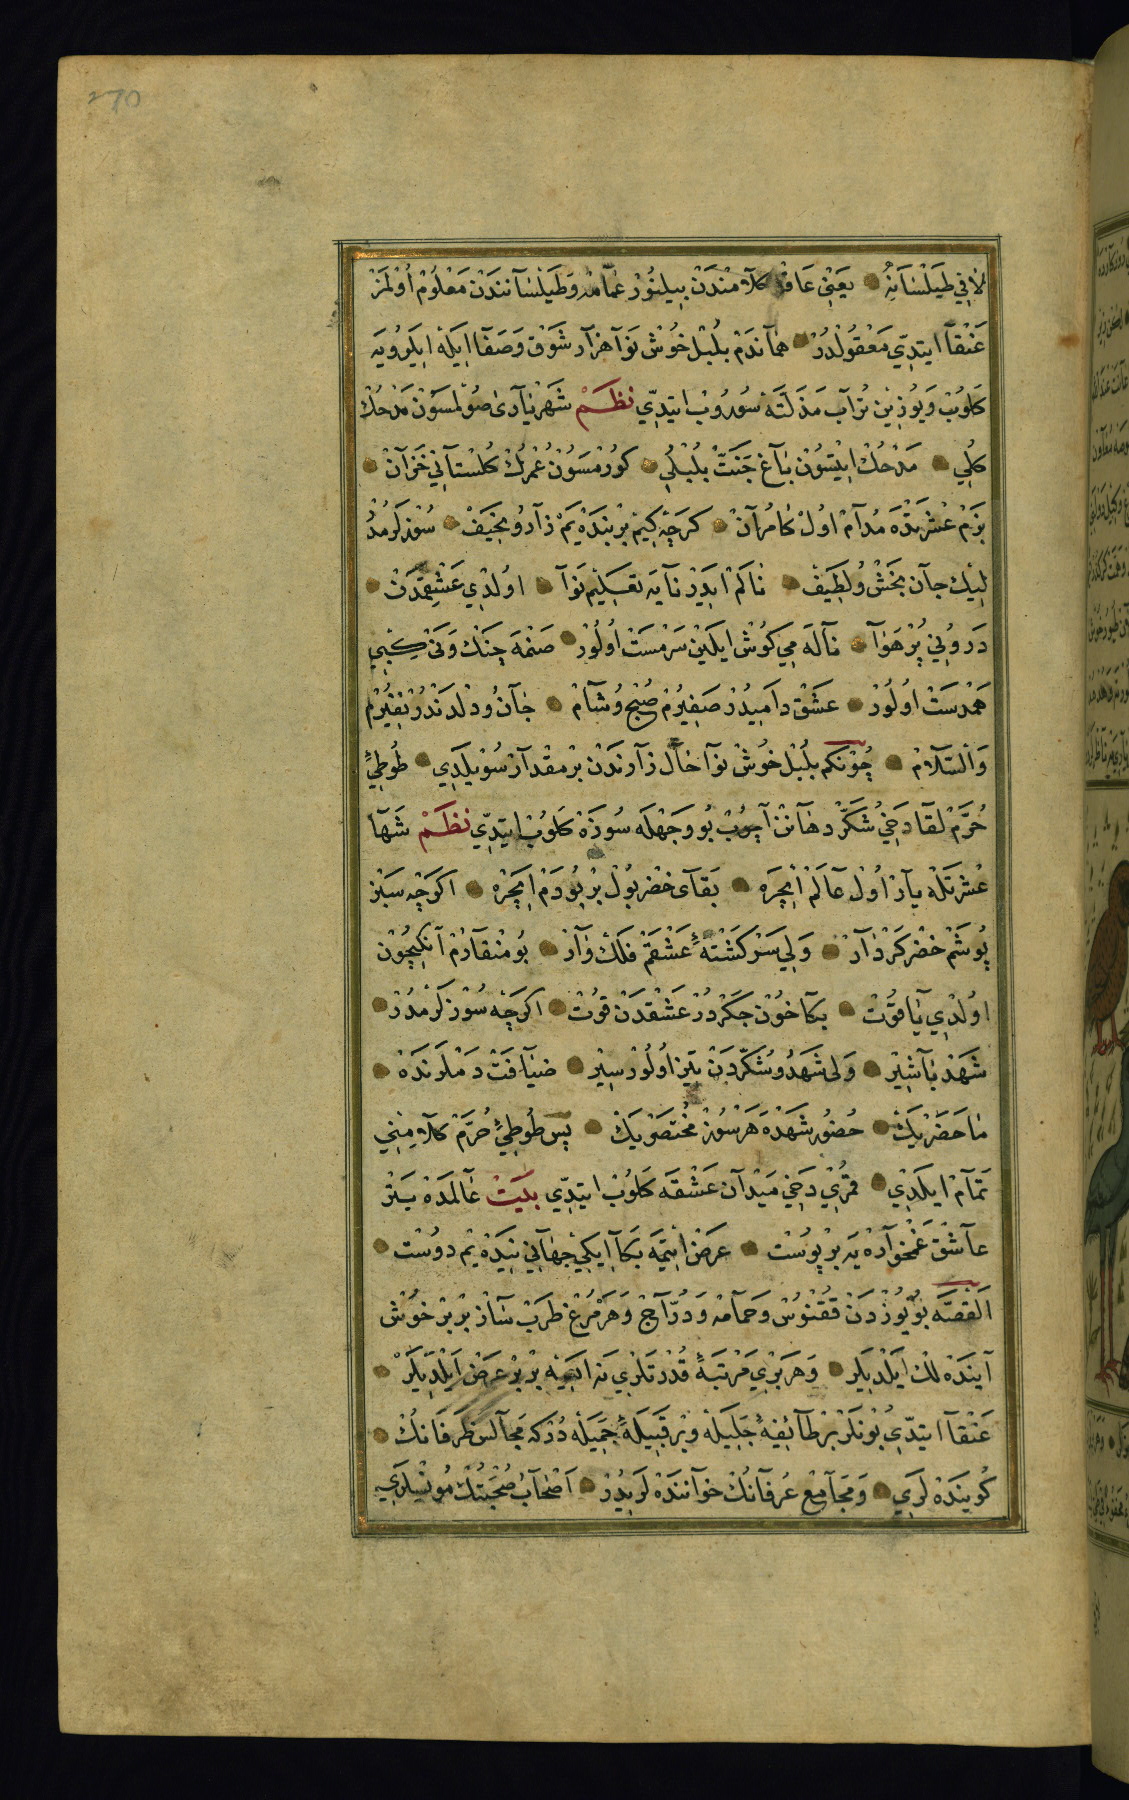 270
لا في طيلسانه يعني عاقل كلامندن بيلنور عمامه و طيلسانندن معلوم اولمز
عنقا ايتدي معقولدر همان دم بلبل خوش نوا هزار شوق وصفا ايله ايلرويه
كلوب ويوزين تراب مذلته سوروب ايتدي نظم شهريارى صولمسون مدحك
كلي مدحك ايتسون باغ جنت بلبلي كورمسون عمرك كلستاني خزان
بزم عشرتده مدام اول كامران كرچه كيم بر بنده يم زار و نحيف سوزلرمدر
ليك جان بخش و لطيف نالم ايدر نايه تعليم نوا اولدي عشقمدن
دروني پر هوا ناله مي كوش ايلين سرمست اولور صنمه چنك و ني كبي
همدست اولور عشق داميدر صفيرم صبح و شام جان و دلدندر نفيرم
والسلام چونكم بلبل خوش نوا حال زارندن بر مقدار سويلدي طوطئ
خرم لقا دخي شكر دهانن آچوب بو وجهله سوزه كلوب ايتدي نظم شها
عشرتله يار اول عالم ايچره بقاى خضر بول بر بودم ايچره اكرچه سبز
پوشم خضر كردار ولي سركشته ء عشقم فلك وار بو منقارم آنكيچون
اولدي ياقوت بكا خون جكردر عشقدن قوت اكرچه سوزلرمدر
شهد ناشير ولى شهد و شكردن تيز اولور سير ضيافت دملرنده
ما حضر يك حضور شهده هر سوز مختصر يك پس طوطئ خرم كلامني
تمام ايلدي قمري دخي ميدان عشقه كلوب ايتدي بيت عالمده بتر
عاشق غمخواره يه بر پوست عرض ايتمه بكا ايكي جهاني نيده يم دوست
القصه بو يوزدن ققنوس و حمامه و دراج و هر مرغ طرب ساز بر بر خوش
آينده لك ايلديلر و هر بري مرتبه ء قدرتلري نه ايسه بر بر عرض ايلديلر
عنقا ايتدي بونلر بر طائفه ء جليله و بر قبيله ء جميله دركه مجالس ظرفانك
كوينده لري و مجامع عرفانك خواننده لريدر اصحاب صحبتك مونسلري